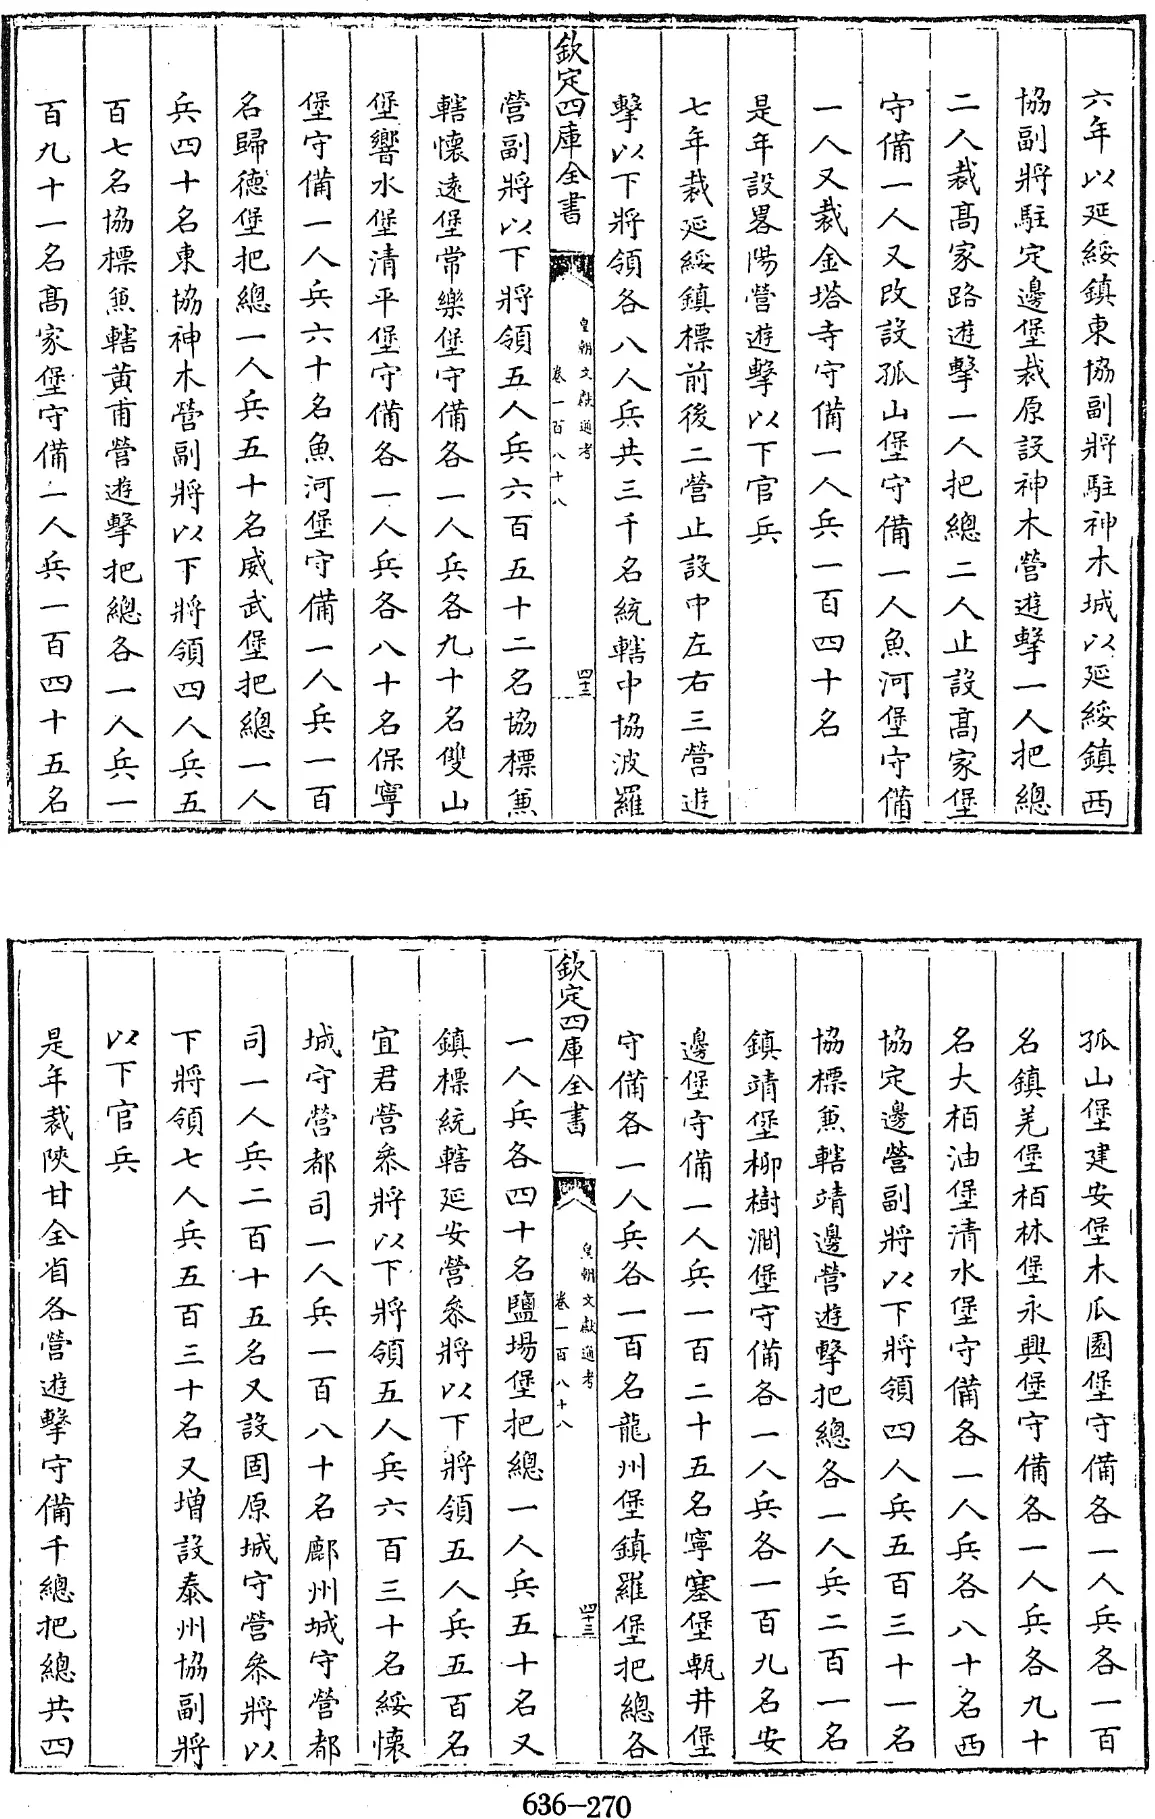 六年以延綏鎮東協副將駐神木城以延綏鎮西
協副將駐定邊堡裁原設神木營遊擊一人把總
二人裁髙家路遊擊一人把總二人止設髙家堡
守備一人又改設孤山堡守備一人魚河堡守備
一人又裁金塔寺守備一人兵一百四十名
是年設畧陽營遊擊以下官兵
七年裁延綏鎮標前後二營止設中左右三營遊
擊以下將領各八人兵共三千名統轄中協波羅
欽定四庫全書
皇朝文獻通考
卷一百八十八
四十三
營副將以下將領五人兵六百五十二名協標兼
轄懷遠堡常樂堡守備各一人兵各九十名雙山
堡響水堡清平堡守備各一人兵各八十名保寧
堡守備一人兵六十名魚河堡守備一人兵一百
名歸德堡把總一人兵五十名威武堡把總一人
兵四十名東協神木營副將以下將領四人兵五
百七名協標兼轄黄甫營遊擊把總各一人兵一
百九十一名髙家堡守備一人兵一百四十五名
孤山堡建安堡木瓜園堡守備各一人兵各一百
名鎮羌堡栢林堡永興堡守備各一人兵各九十
名大栢油堡清水堡守備各一人兵各八十名西
協定邊營副將以下將領四人兵五百三十一名
協標兼轄靖邊營遊擊把總各一人兵二百一名
鎮靖堡栁樹澗堡守備各一人兵各一百九名安
邊堡守備一人兵一百二十五名寧塞堡甎井堡
守備各一人兵各一百名龍州堡鎮羅堡把總各
欽定四庫全書
皇朝文獻通考
卷一百八十八
四十三
一人兵各四十名鹽場堡把總一人兵五十名又
鎮標統轄延安營叅將以下將領五人兵五百名
宜君營叅將以下將領五人兵六百三十名綏懷
城守營都司一人兵一百八十名鄜州城守營都
司一人兵二百十五名又設固原城守營叅將以
下將領七人兵五百三十名又増設秦州協副將
以下官兵
是年裁陜甘全省各營遊擊守備千總把總共四
636-270